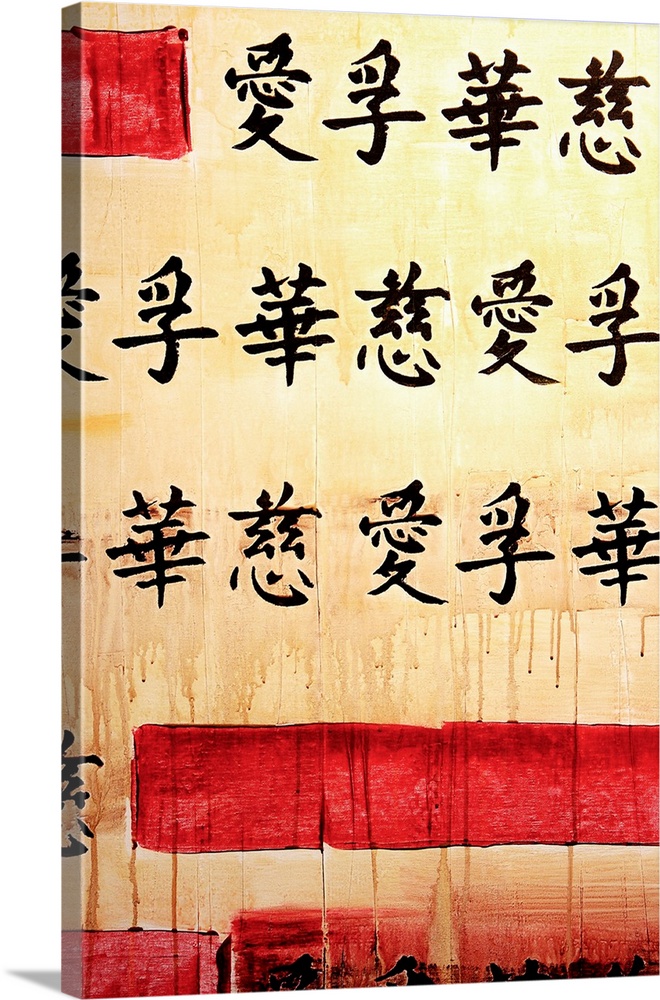 愛孚華慈
愛孚華慈愛孚
華慈愛孚華
慈